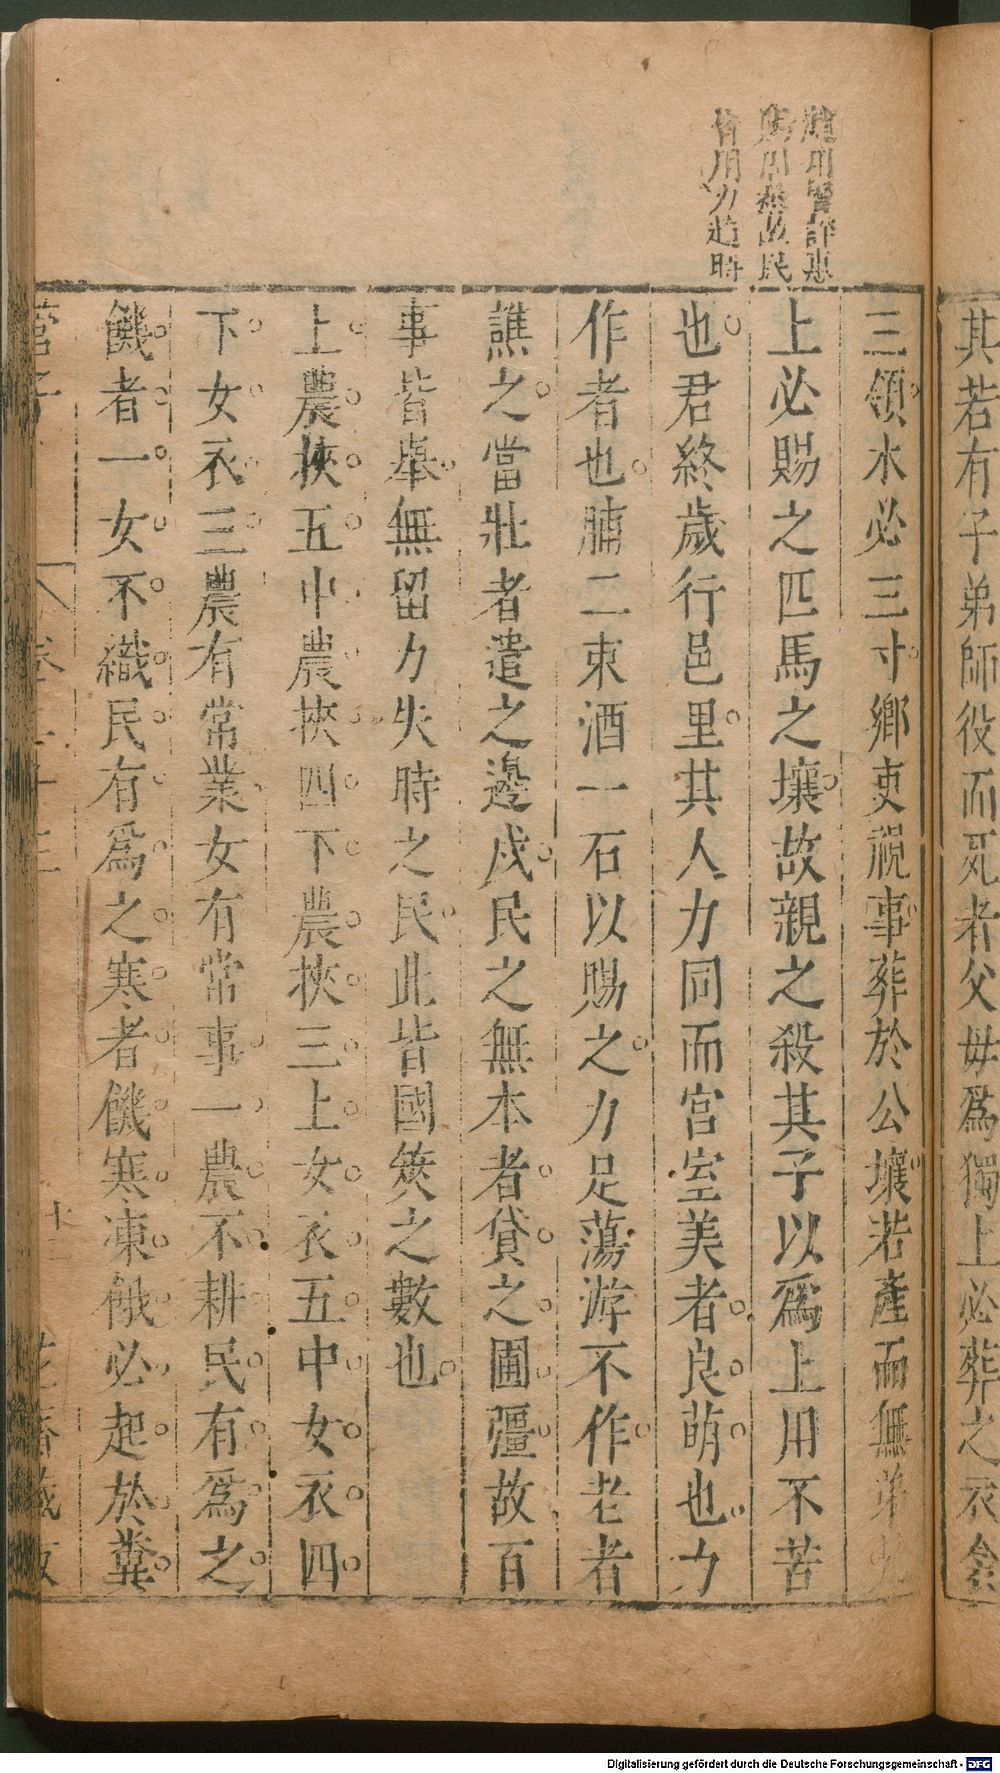 其若有子弟師役而死者父母爲獨上必葬之衣衾
三領木必三寸鄉吏視事葬於公壤若產而無弟兄
上必賜之匹馬之壤故親之殺其子以爲上用不苦
也君終歲行邑里其人力同而宮室美者良萌也力
作者也脯二束酒一石以賜之力足蕩游不作老者
譙之當壯者遣之邊戍民之無本者貸之圃疆故百
事皆舉無留力失時之民此皆國筴之數也
上農挾五中農挾四下農挾三上女衣五中女衣四
下女衣三農有常業女有常事一農不耕民有爲之
饑者一女不織民有爲之寒者饑寒凍餓必起於糞
管子
卷二十三
十
花齋藏板
用 詳惠
民
皆用力趨時
Digitalisierung gefördert durch die Deutsche Forschungsgemeinschaft - DFG